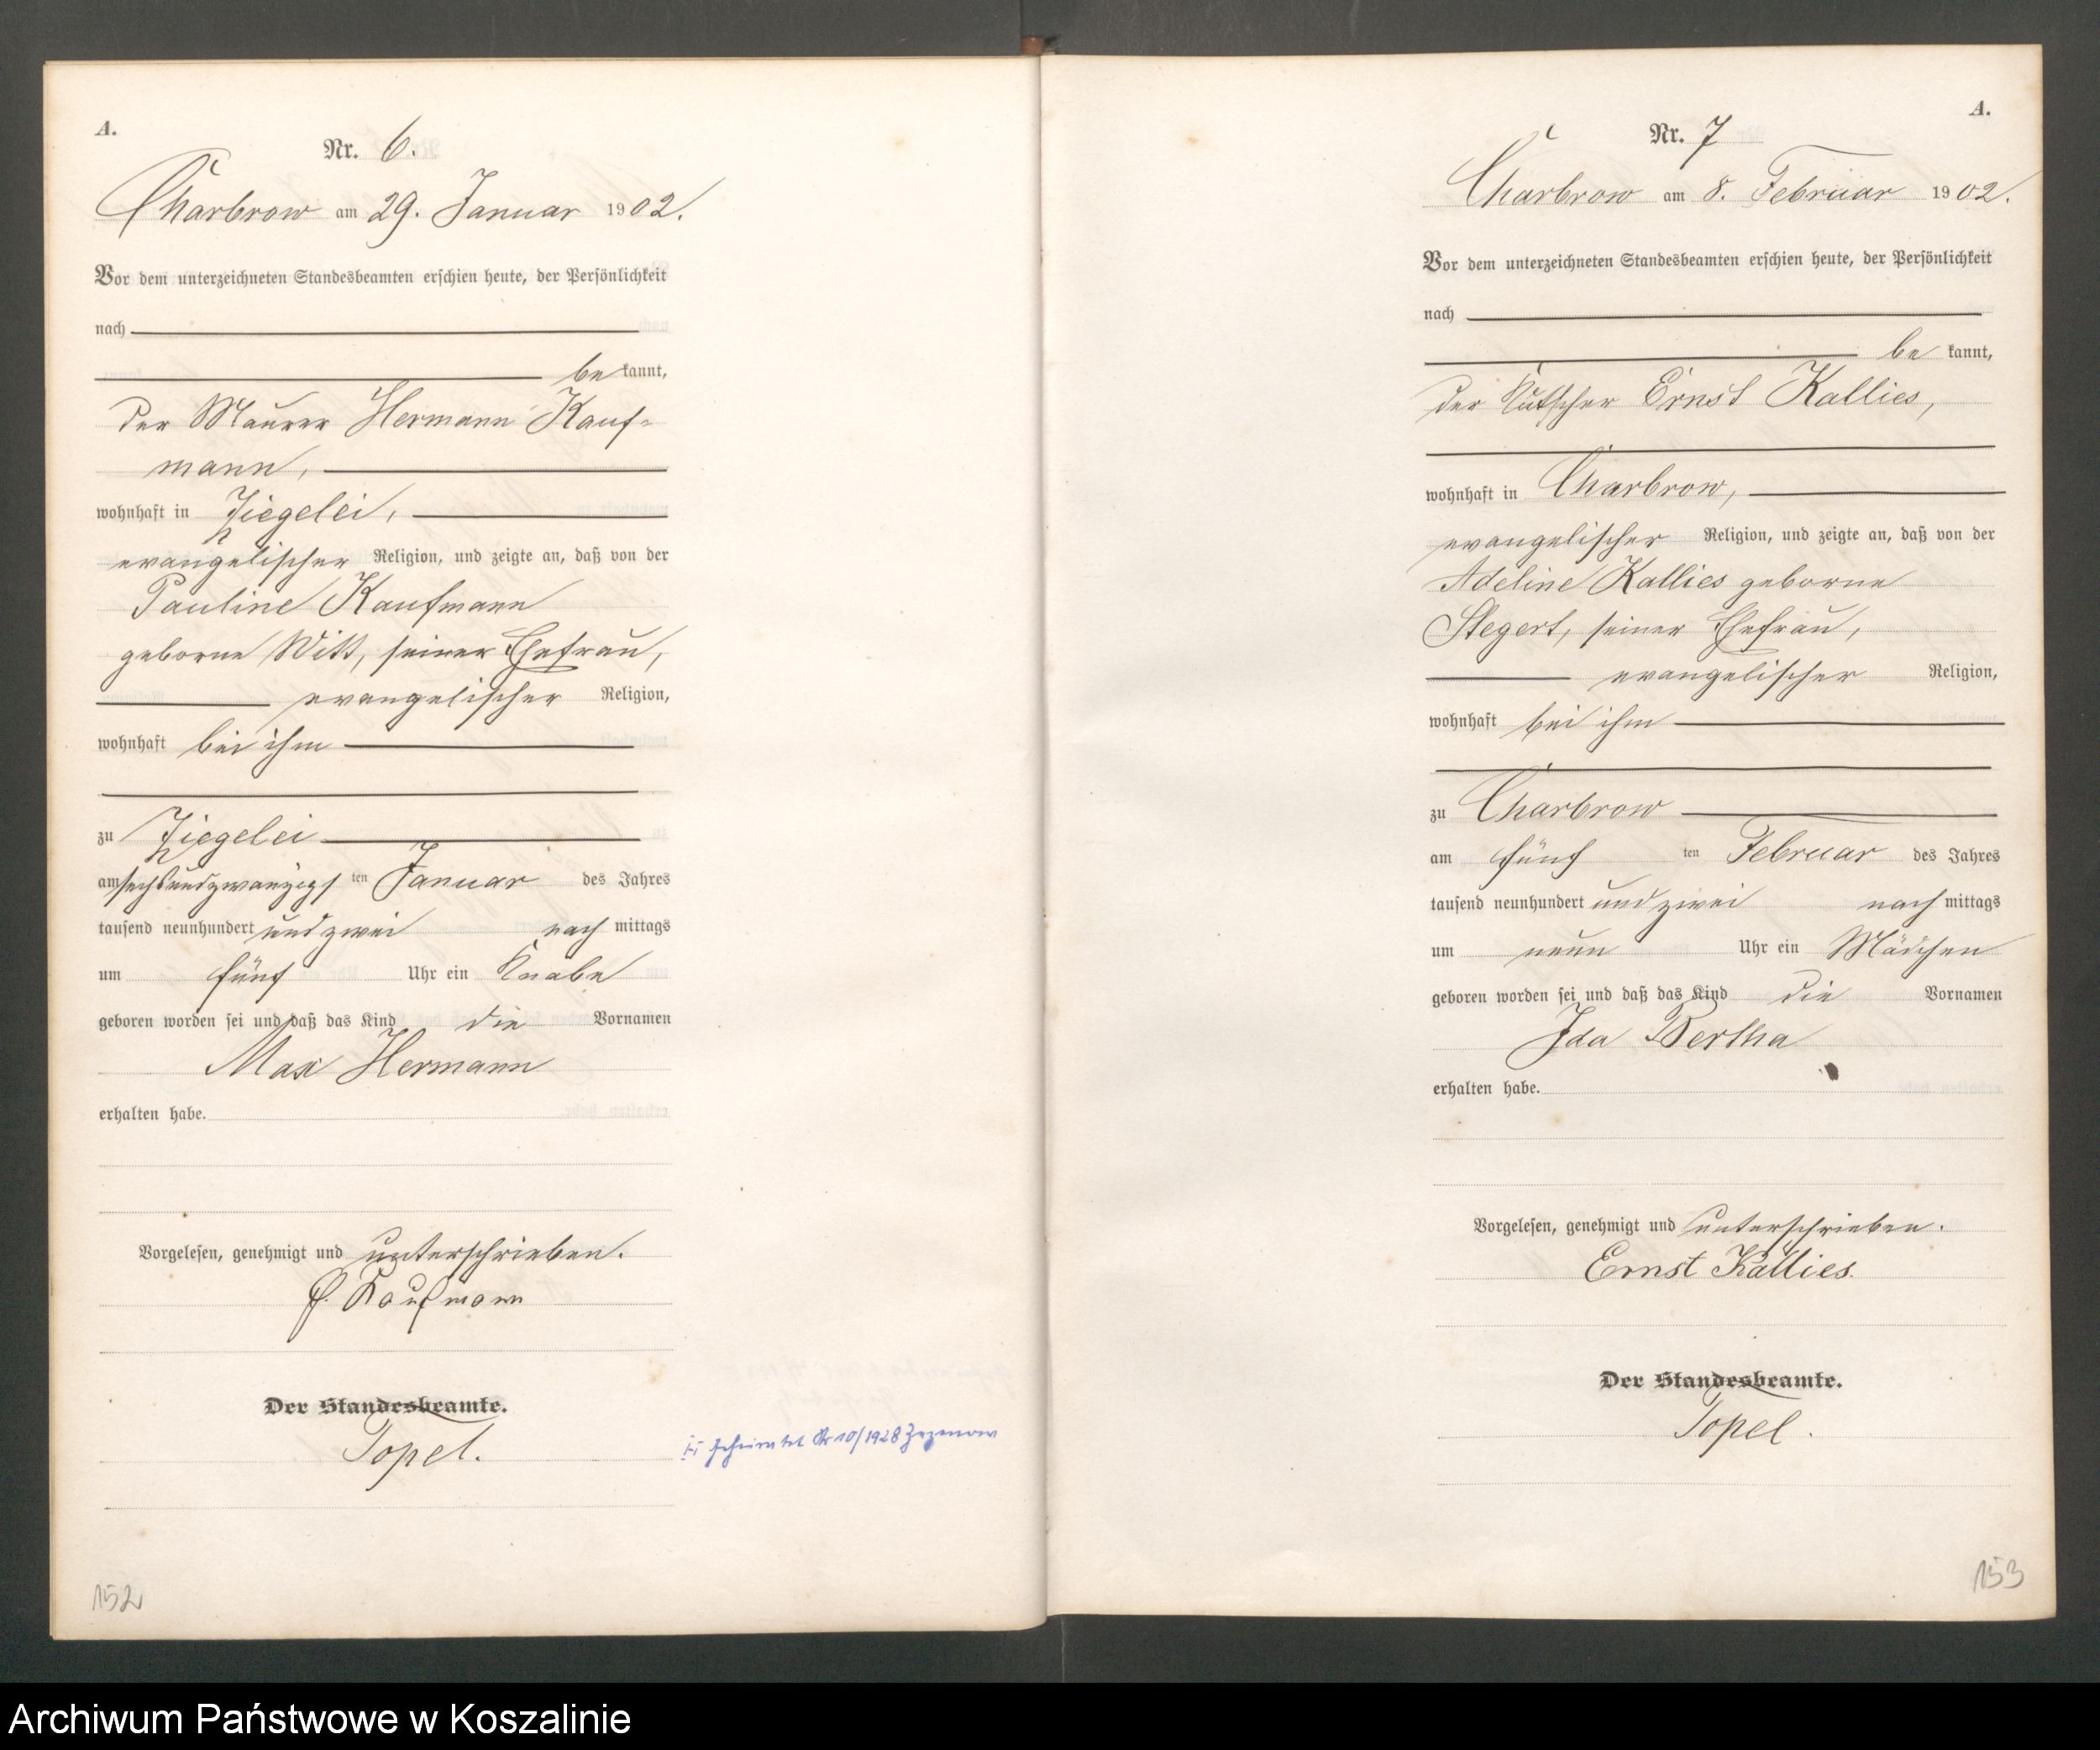 A.
Nr. 6.
Charbrow am 29. Januar 1902.
Vor dem unterzeichneten Standesbeamten erschien heute, der Persönlichkeit
nach
be kannt,
der Maurer Hermann Kauf-
mann,
wohnhaft in Ziegelei,
evangelischer Religion, und zeigte an, daß von der
Pauline Kaufmann
geborne Witt, seiner Ehefrau,
evangelischer Religion,
wohnhaft bei ihm
zu Ziegelei
am sechsundzwanzigsten Januar des Jahres
tausend neunhundert und zwei nach mittags
um fünf Uhr ein Knabe
geboren worden sei und daß das Kind die Vornamen
Max Hermann
erhalten habe.
Vorgelesen, genehmigt und unterschrieben.
H. Kaufmann
Der Standesbeamte.
Topel.
geheiratet Nr 10/1928 Zezenow
152
A.
Nr. 7
Charbrow am 8. Februar 1902.
Vor dem unterzeichneten Standesbeamten erschien heute, der Persönlichkeit
nach
be kannt,
der Kutscher Ernst Kallies,
wohnhaft in Charbrow,
evangelischer Religion, und zeigte an, daß von der
Adeline Kallies geborne
Stegert, seiner Ehefrau,
evangelischer Religion,
wohnhaft bei ihm
zu Charbrow
am fünf ten Februar des Jahres
tausend neunhundert und zwei nach mittags
um neun Uhr ein Mädchen
geboren worden sei und daß das Kind die Vornamen
Ida Bertha
erhalten habe.
Vorgelesen, genehmigt und unterschrieben.
Ernst Kallies.
Der Standesbeamte.
Topel.
153
Archiwum Państwowe w Koszalinie